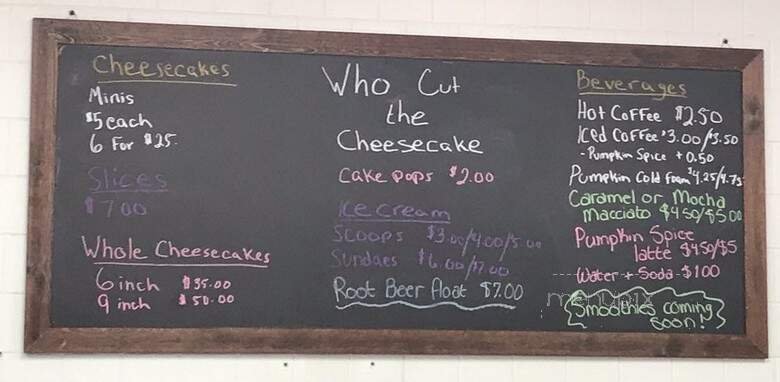 Cheesecakes
Minis
$5 each
6 For $25.
Slices
$7.00
Whole Cheesecakes
6 inch $35.00
9 inch $50.00
Who Cut
the
Cheesecake
Cake pops $2.00
Ice cream
Scoops $3.00/4.00/5.00
Sundaes $6.00/7.00
Root Beer float $7.00
Beverages
Hot Coffee $2.50
Iced Coffee $3.00/3.50
- Pumpkin Spice + 0.50
Pumpkin Cold foam $4.25/4.75
Caramel or Mocha
macciato $4.50/$5.00
Pumpkin Spice
latte $4.50/$5
Water + Soda - $1.00
Smoothies coming
soon!
menupix